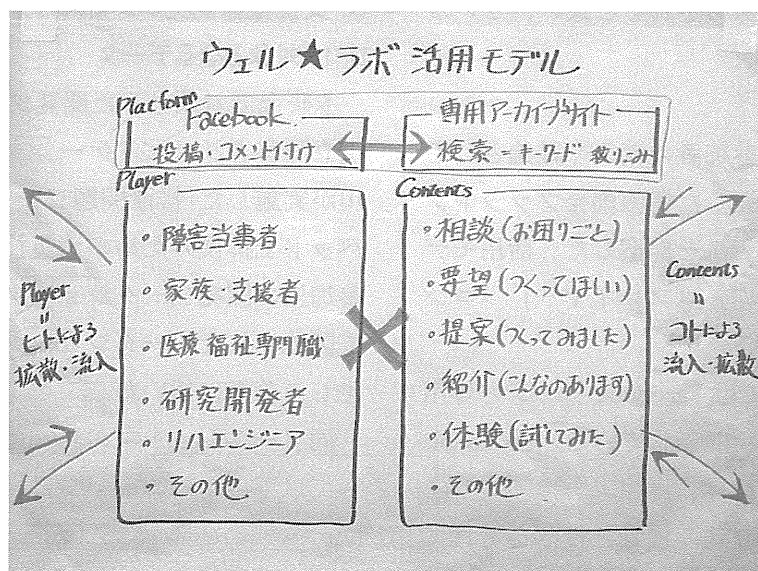 ウェル★ラボ 活用モデル
Platform
Facebook
投稿・コメント付け
専用アーカイブサイト
検索=キーワード 絞りこみ
Player
・障害当事者
・家族・支援者
・医療福祉専門職
・研究開発者
・リハエンジニア
・その他
×
Contents
・相談(お困りごと)
・要望(つくってほしい)
・提案(つくってみました)
・紹介(こんなのあります)
・体験(試してみた)
・その他
Player
=
ヒトによる
拡散・流入
Contents
=
コトによる
流入・拡散